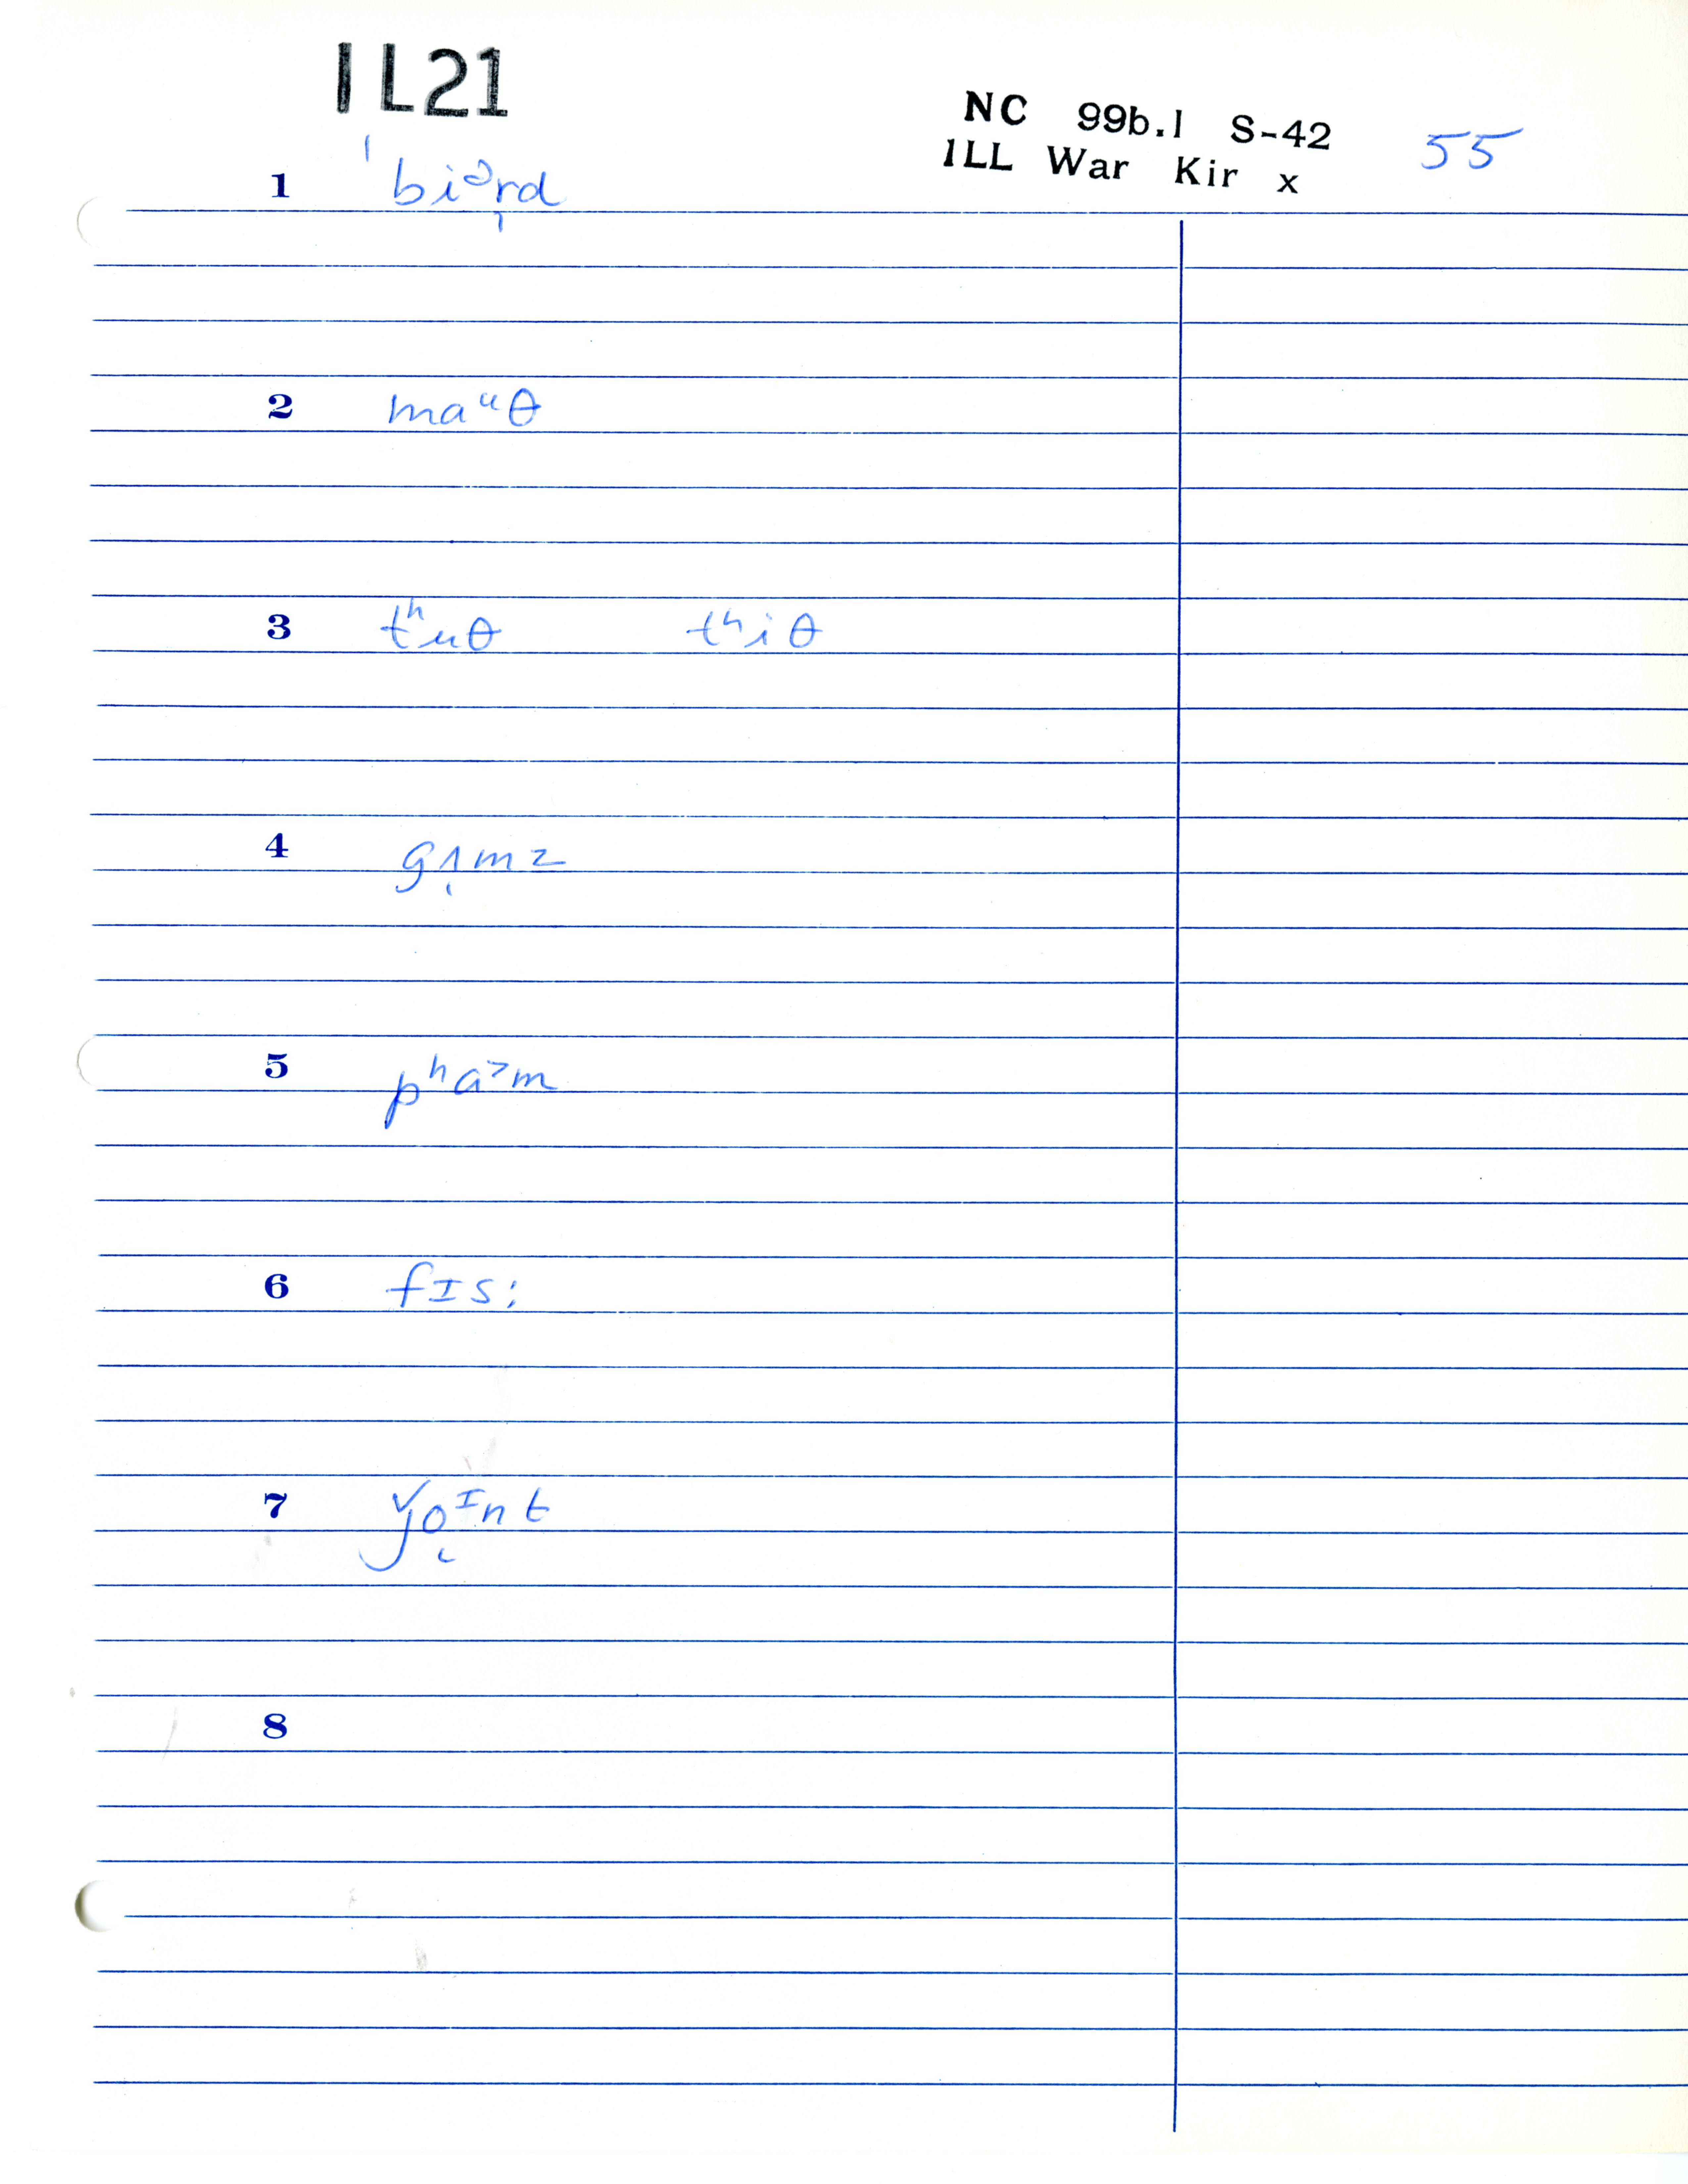 IL21
NC 99b.1 S-42
ILL War Kir x
55
1 ˈbiᵊr̩d
2 maᵘθ
3 tʰuθ tʰiθ
4 gʌ̨mz
5 pʰɑ˃m
6 fɪs;
7 ǰo̜ᶦnt
8